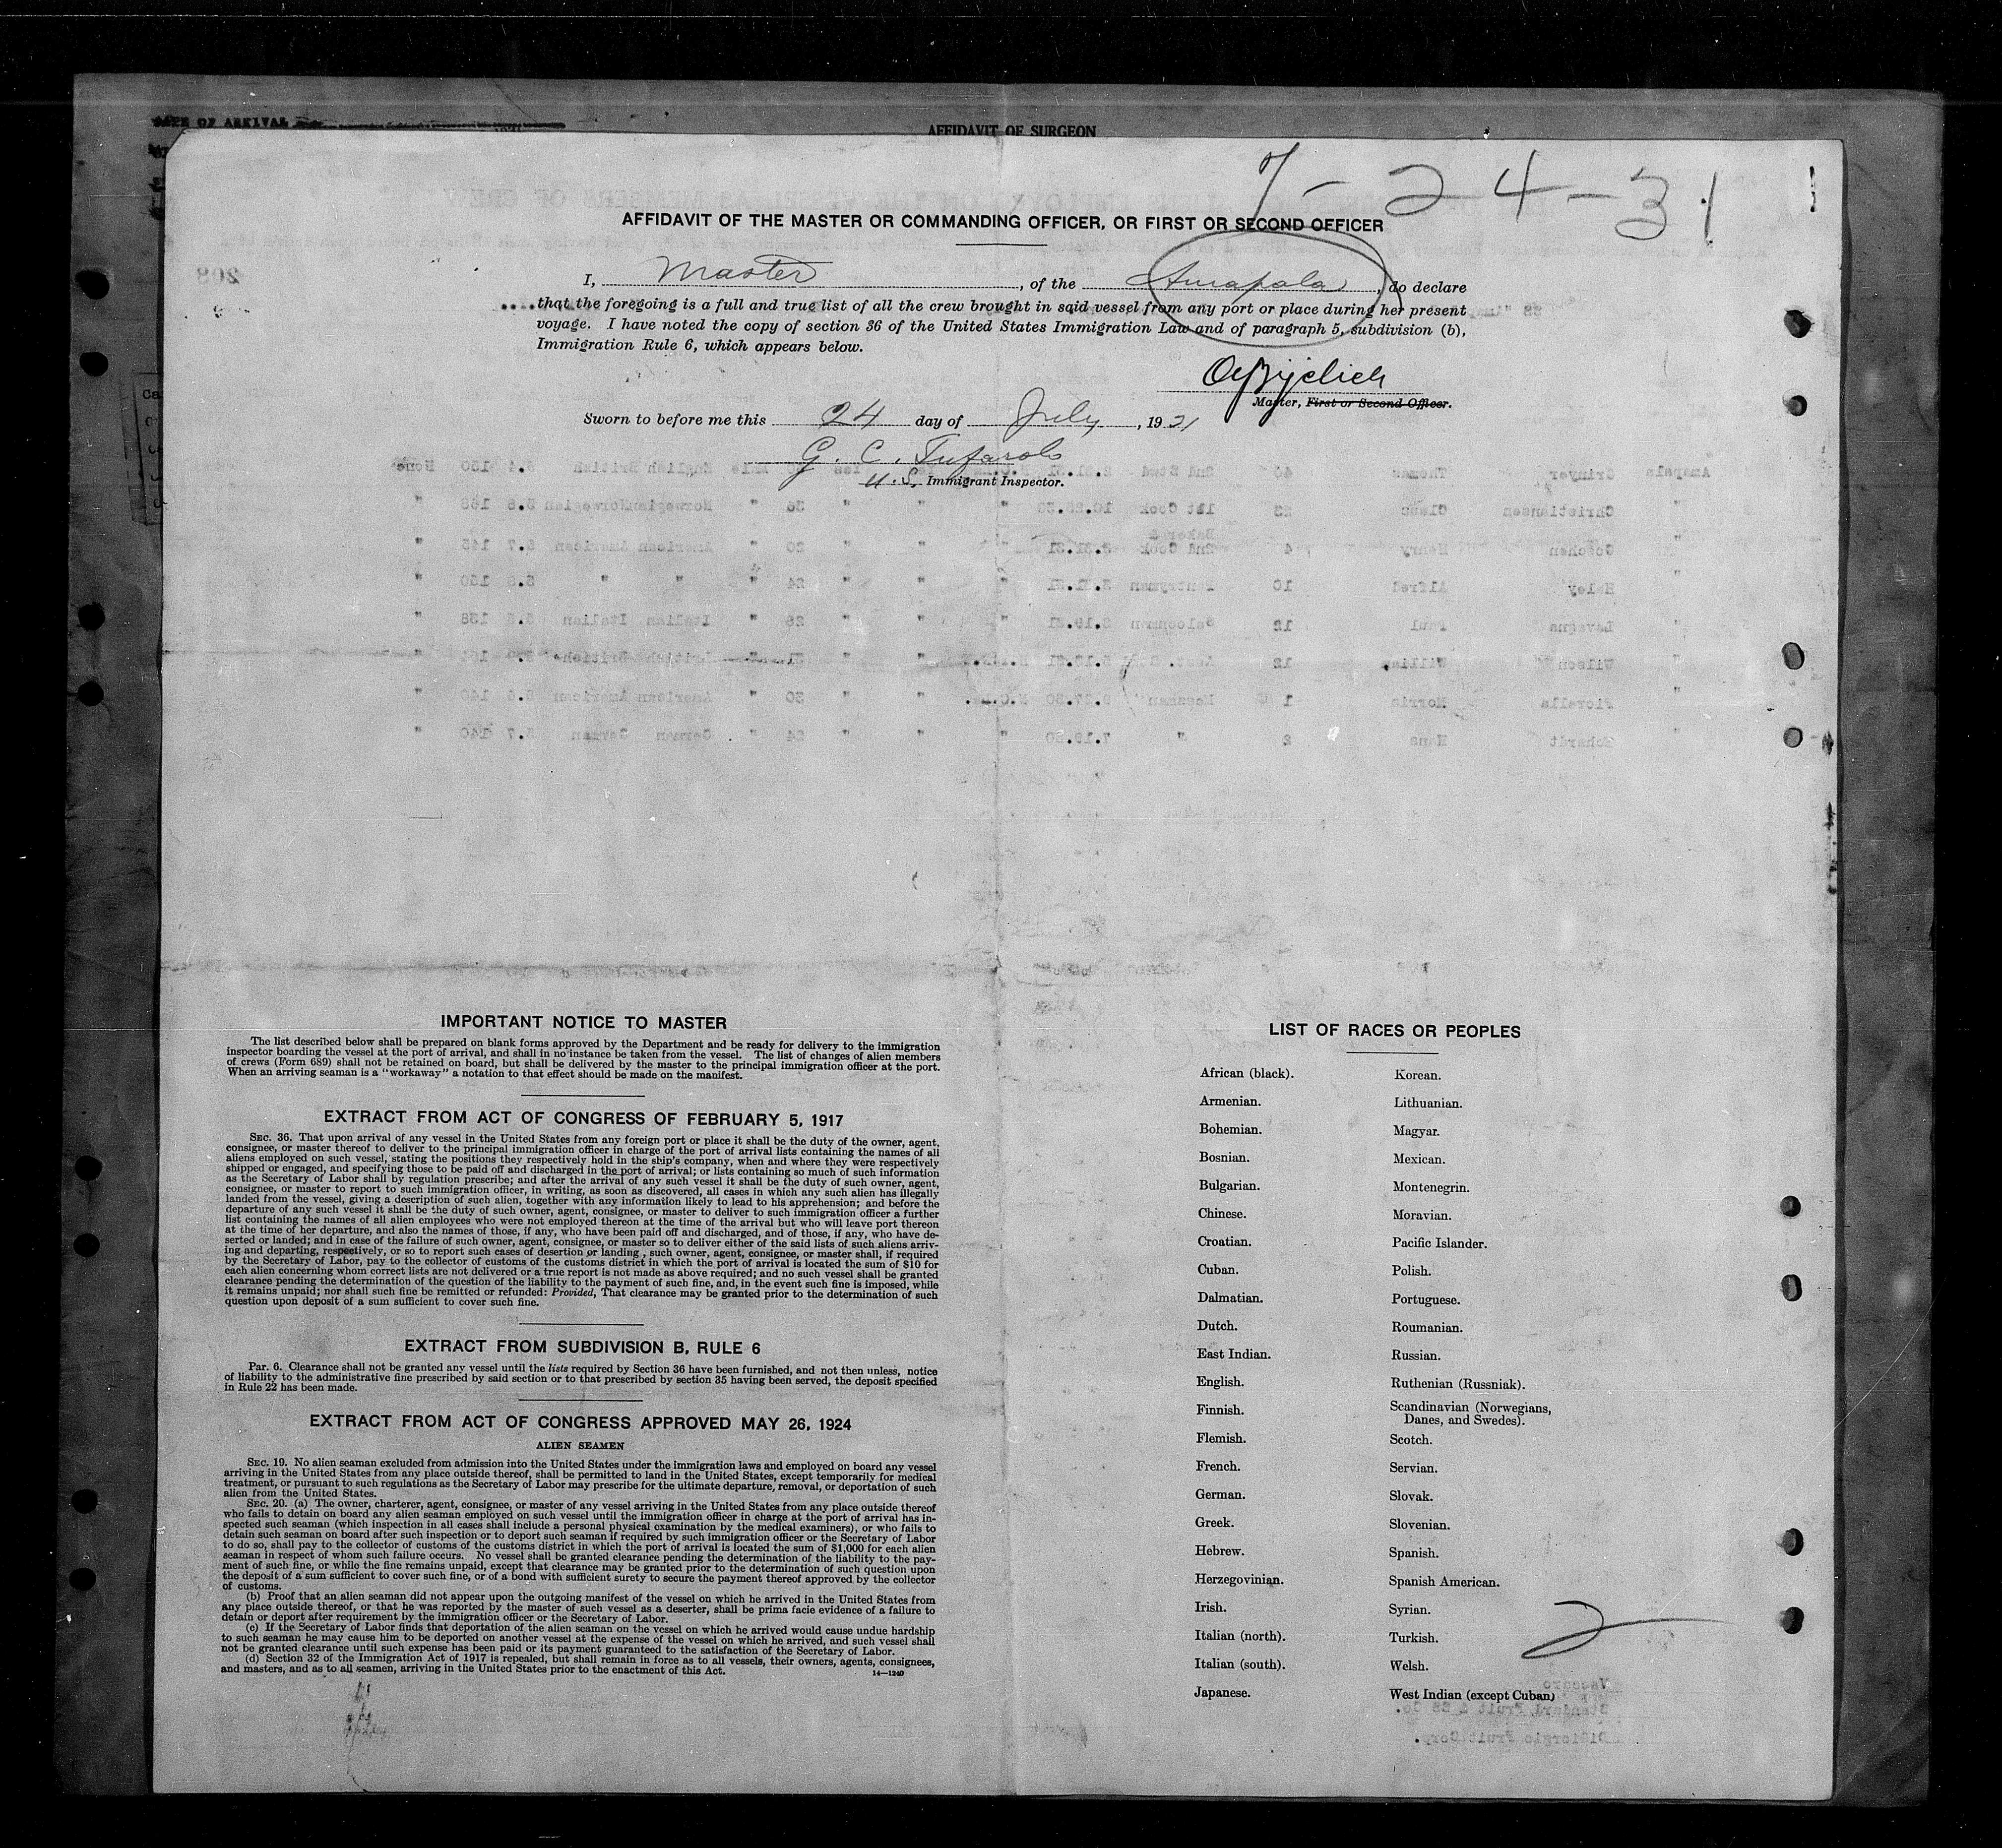 DATE OF ARRIVAL
AFFIDAVIT OF SURGEON
7-24-31
AFFIDAVIT OF THE MASTER OR COMMANDING OFFICER, OR FIRST OR SECOND OFFICER
I, Master, of the Amapala, do declare
that the foregoing is a full and true list of all the crew brought in said vessel from any port or place during her present
voyage. I have noted the copy of section 36 of the United States Immigration Law and of paragraph 5, subdivision (b),
Immigration Rule 6, which appears below.
Master, First or Second Officer.
Sworn to before me this 24 day of July, 1931
G. C. Tufarolo
U.S. Immigrant Inspector.
IMPORTANT NOTICE TO MASTER
The list described below shall be prepared on blank forms approved by the Department and be ready for delivery to the immigration
inspector boarding the vessel at the port of arrival, and shall in no instance be taken from the vessel. The list of changes of alien members
of crews (Form 689) shall not be retained on board, but shall be delivered by the master to the principal immigration officer at the port.
When an arriving seaman is a "workaway" a notation to that effect should be made on the manifest.
EXTRACT FROM ACT OF CONGRESS OF FEBRUARY 5, 1917
SEC. 36. That upon arrival of any vessel in the United States from any foreign port or place it shall be the duty of the owner, agent,
consignee, or master thereof to deliver to the principal immigration officer in charge of the port of arrival lists containing the names of all
aliens employed on such vessel, stating the positions they respectively hold in the ship's company, when and where they were respectively
shipped or engaged, and specifying those to be paid off and discharged in the port of arrival; or lists containing so much of such information
as the Secretary of Labor shall by regulation prescribe; and after the arrival of any such vessel it shall be the duty of such owner, agent,
consignee, or master to report to such immigration officer, in writing, as soon as discovered, all cases in which any such alien has illegally
landed from the vessel, giving a description of such alien, together with any information likely to lead to his apprehension; and before the
departure of any such vessel it shall be the duty of such owner, agent, consignee, or master to deliver to such immigration officer a further
list containing the names of all alien employees who were not employed thereon at the time of the arrival but who will leave port thereon
at the time of her departure, and also the names of those, if any, who have been paid off and discharged, and of those, if any, who have de-
serted or landed; and in case of the failure of such owner, agent, consignee, or master so to deliver either of the said lists of such aliens arriv-
ing and departing, respectively, or so to report such cases of desertion or landing, such owner, agent, consignee, or master shall, if required
by the Secretary of Labor, pay to the collector of customs of the customs district in which the port of arrival is located the sum of $10 for
each alien concerning whom correct lists are not delivered or a true report is not made as above required; and no such vessel shall be granted
clearance pending the determination of the question of the liability to the payment of such fine, and, in the event such fine is imposed, while
it remains unpaid; nor shall such fine be remitted or refunded: Provided, That clearance may be granted prior to the determination of such
question upon deposit of a sum sufficient to cover such fine.
EXTRACT FROM SUBDIVISION B, RULE 6
Par. 6. Clearance shall not be granted any vessel until the lists required by Section 36 have been furnished, and not then unless, notice
of liability to the administrative fine prescribed by said section or to that prescribed by section 35 having been served, the deposit specified
in Rule 22 has been made.
EXTRACT FROM ACT OF CONGRESS APPROVED MAY 26, 1924
ALIEN SEAMEN
SEC. 19. No alien seaman excluded from admission into the United States under the immigration laws and employed on board any vessel
arriving in the United States from any place outside thereof, shall be permitted to land in the United States, except temporarily for medical
treatment, or pursuant to such regulations as the Secretary of Labor may prescribe for the ultimate departure, removal, or deportation of such
alien from the United States.
SEC. 20. (a) The owner, charterer, agent, consignee, or master of any vessel arriving in the United States from any place outside thereof
who fails to detain on board any alien seaman employed on such vessel until the immigration officer in charge at the port of arrival has in-
spected such seaman (which inspection in all cases shall include a personal physical examination by the medical examiners), or who fails to
detain such seaman on board after such inspection or to deport such seaman if required by such immigration officer or the Secretary of Labor
to do so, shall pay to the collector of customs of the customs district in which the port of arrival is located the sum of $1,000 for each alien
seaman in respect of whom such failure occurs. No vessel shall be granted clearance pending the determination of the liability to the pay-
ment of such fine, or while the fine remains unpaid, except that clearance may be granted prior to the determination of such question upon
the deposit of a sum sufficient to cover such fine, or of a bond with sufficient surety to secure the payment thereof approved by the collector
of customs.
(b) Proof that an alien seaman did not appear upon the outgoing manifest of the vessel on which he arrived in the United States from
any place outside thereof, or that he was reported by the master of such vessel as a deserter, shall be prima facie evidence of a failure to
detain or deport after requirement by the immigration officer or the Secretary of Labor.
(c) If the Secretary of Labor finds that deportation of the alien seaman on the vessel on which he arrived would cause undue hardship
to such seaman he may cause him to be deported on another vessel at the expense of the vessel on which he arrived, and such vessel shall
not be granted clearance until such expense has been paid or its payment guaranteed to the satisfaction of the Secretary of Labor.
(d) Section 32 of the Immigration Act of 1917 is repealed, but shall remain in force as to all vessels, their owners, agents, consignees,
and masters, and as to all seamen, arriving in the United States prior to the enactment of this Act.
14—1240
LIST OF RACES OR PEOPLES
African (black).
Armenian.
Bohemian.
Bosnian.
Bulgarian.
Chinese.
Croatian.
Cuban.
Dalmatian.
Dutch.
East Indian.
English.
Finnish.
Flemish.
French.
German.
Greek.
Hebrew.
Herzegovinian.
Irish.
Italian (north).
Italian (south).
Japanese.
Korean.
Lithuanian.
Magyar.
Mexican.
Montenegrin.
Moravian.
Pacific Islander.
Polish.
Portuguese.
Roumanian.
Russian.
Ruthenian (Russniak).
Scandinavian (Norwegians,
Danes, and Swedes).
Scotch.
Servian.
Slovak.
Slovenian.
Spanish.
Spanish American.
Syrian.
Turkish.
Welsh.
West Indian (except Cuban)
2